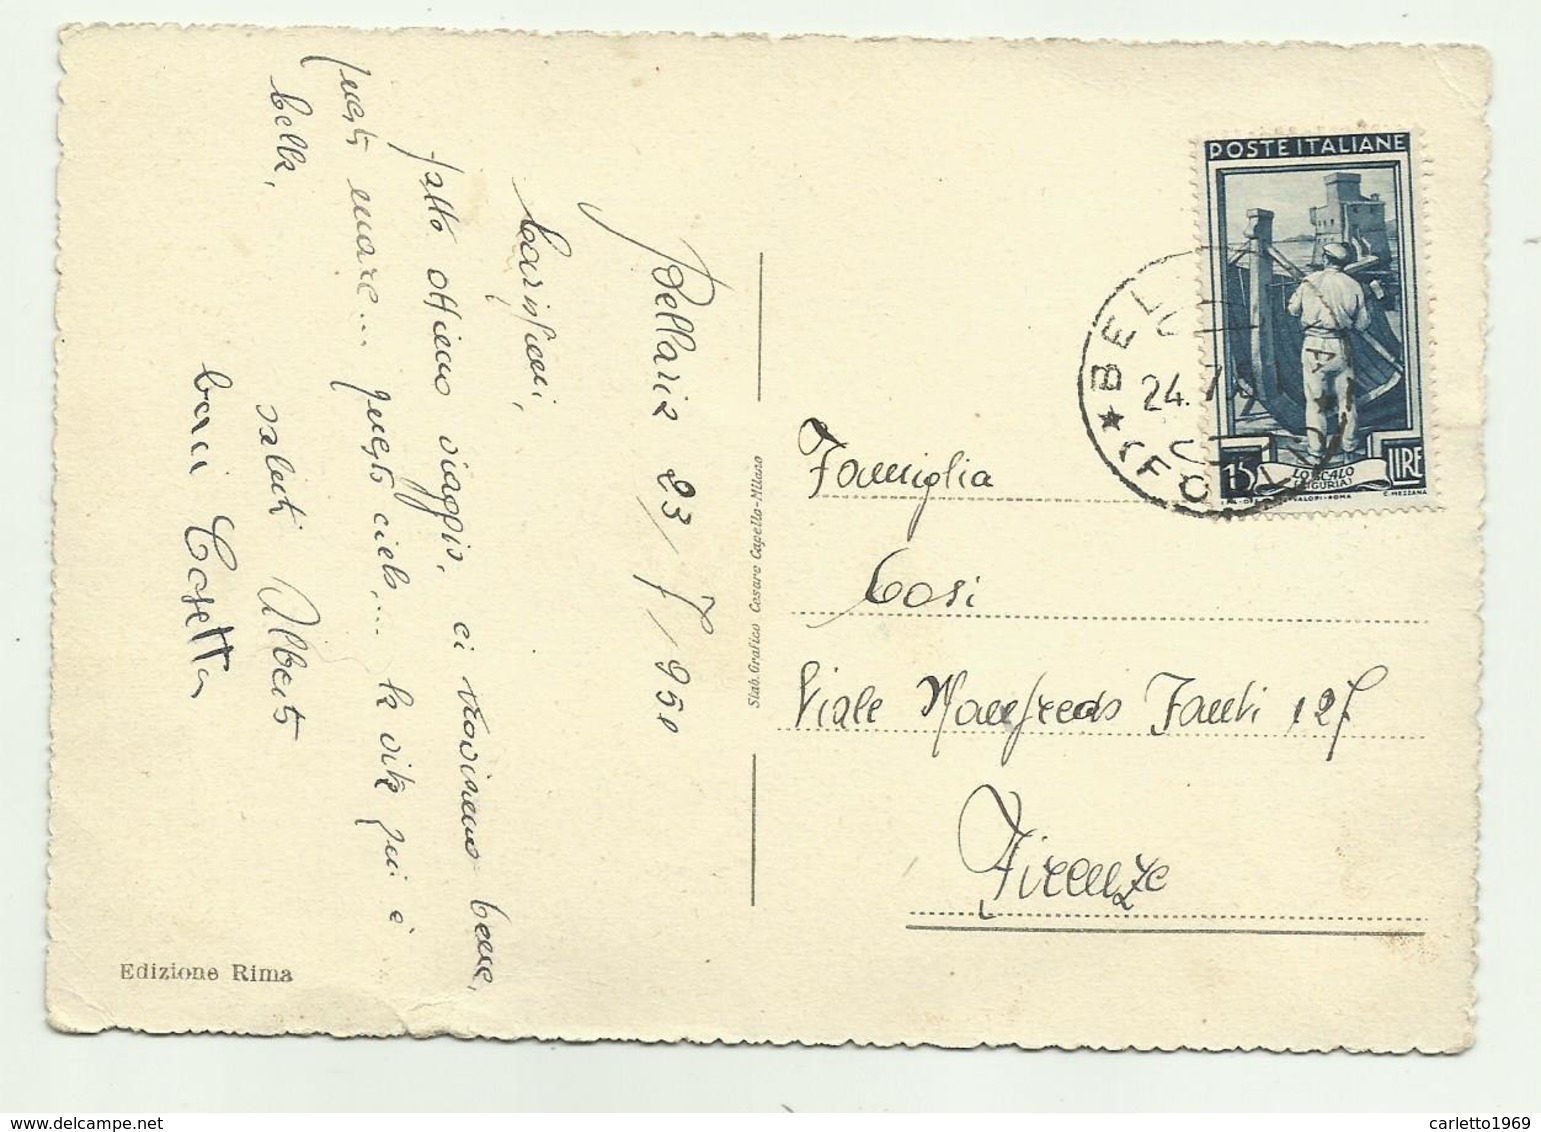 Bellaria 23/7/950
Carissimi,
fatto ottimo viaggio, ci troviamo bene,
questo mare... questo cielo.... la vita qui è
bella,
saluti Alberto
baci Cosetta
Edizione Rima
Stab. Grafico Cesare Capello-Milano
POSTE ITALIANE
15 LIRE
LO SCALO
(LIGURIA)
C. MEZZANA
24.7.5
Famiglia
Cosi
Viale Manfredo Fanti 127
Firenze
carletto1969